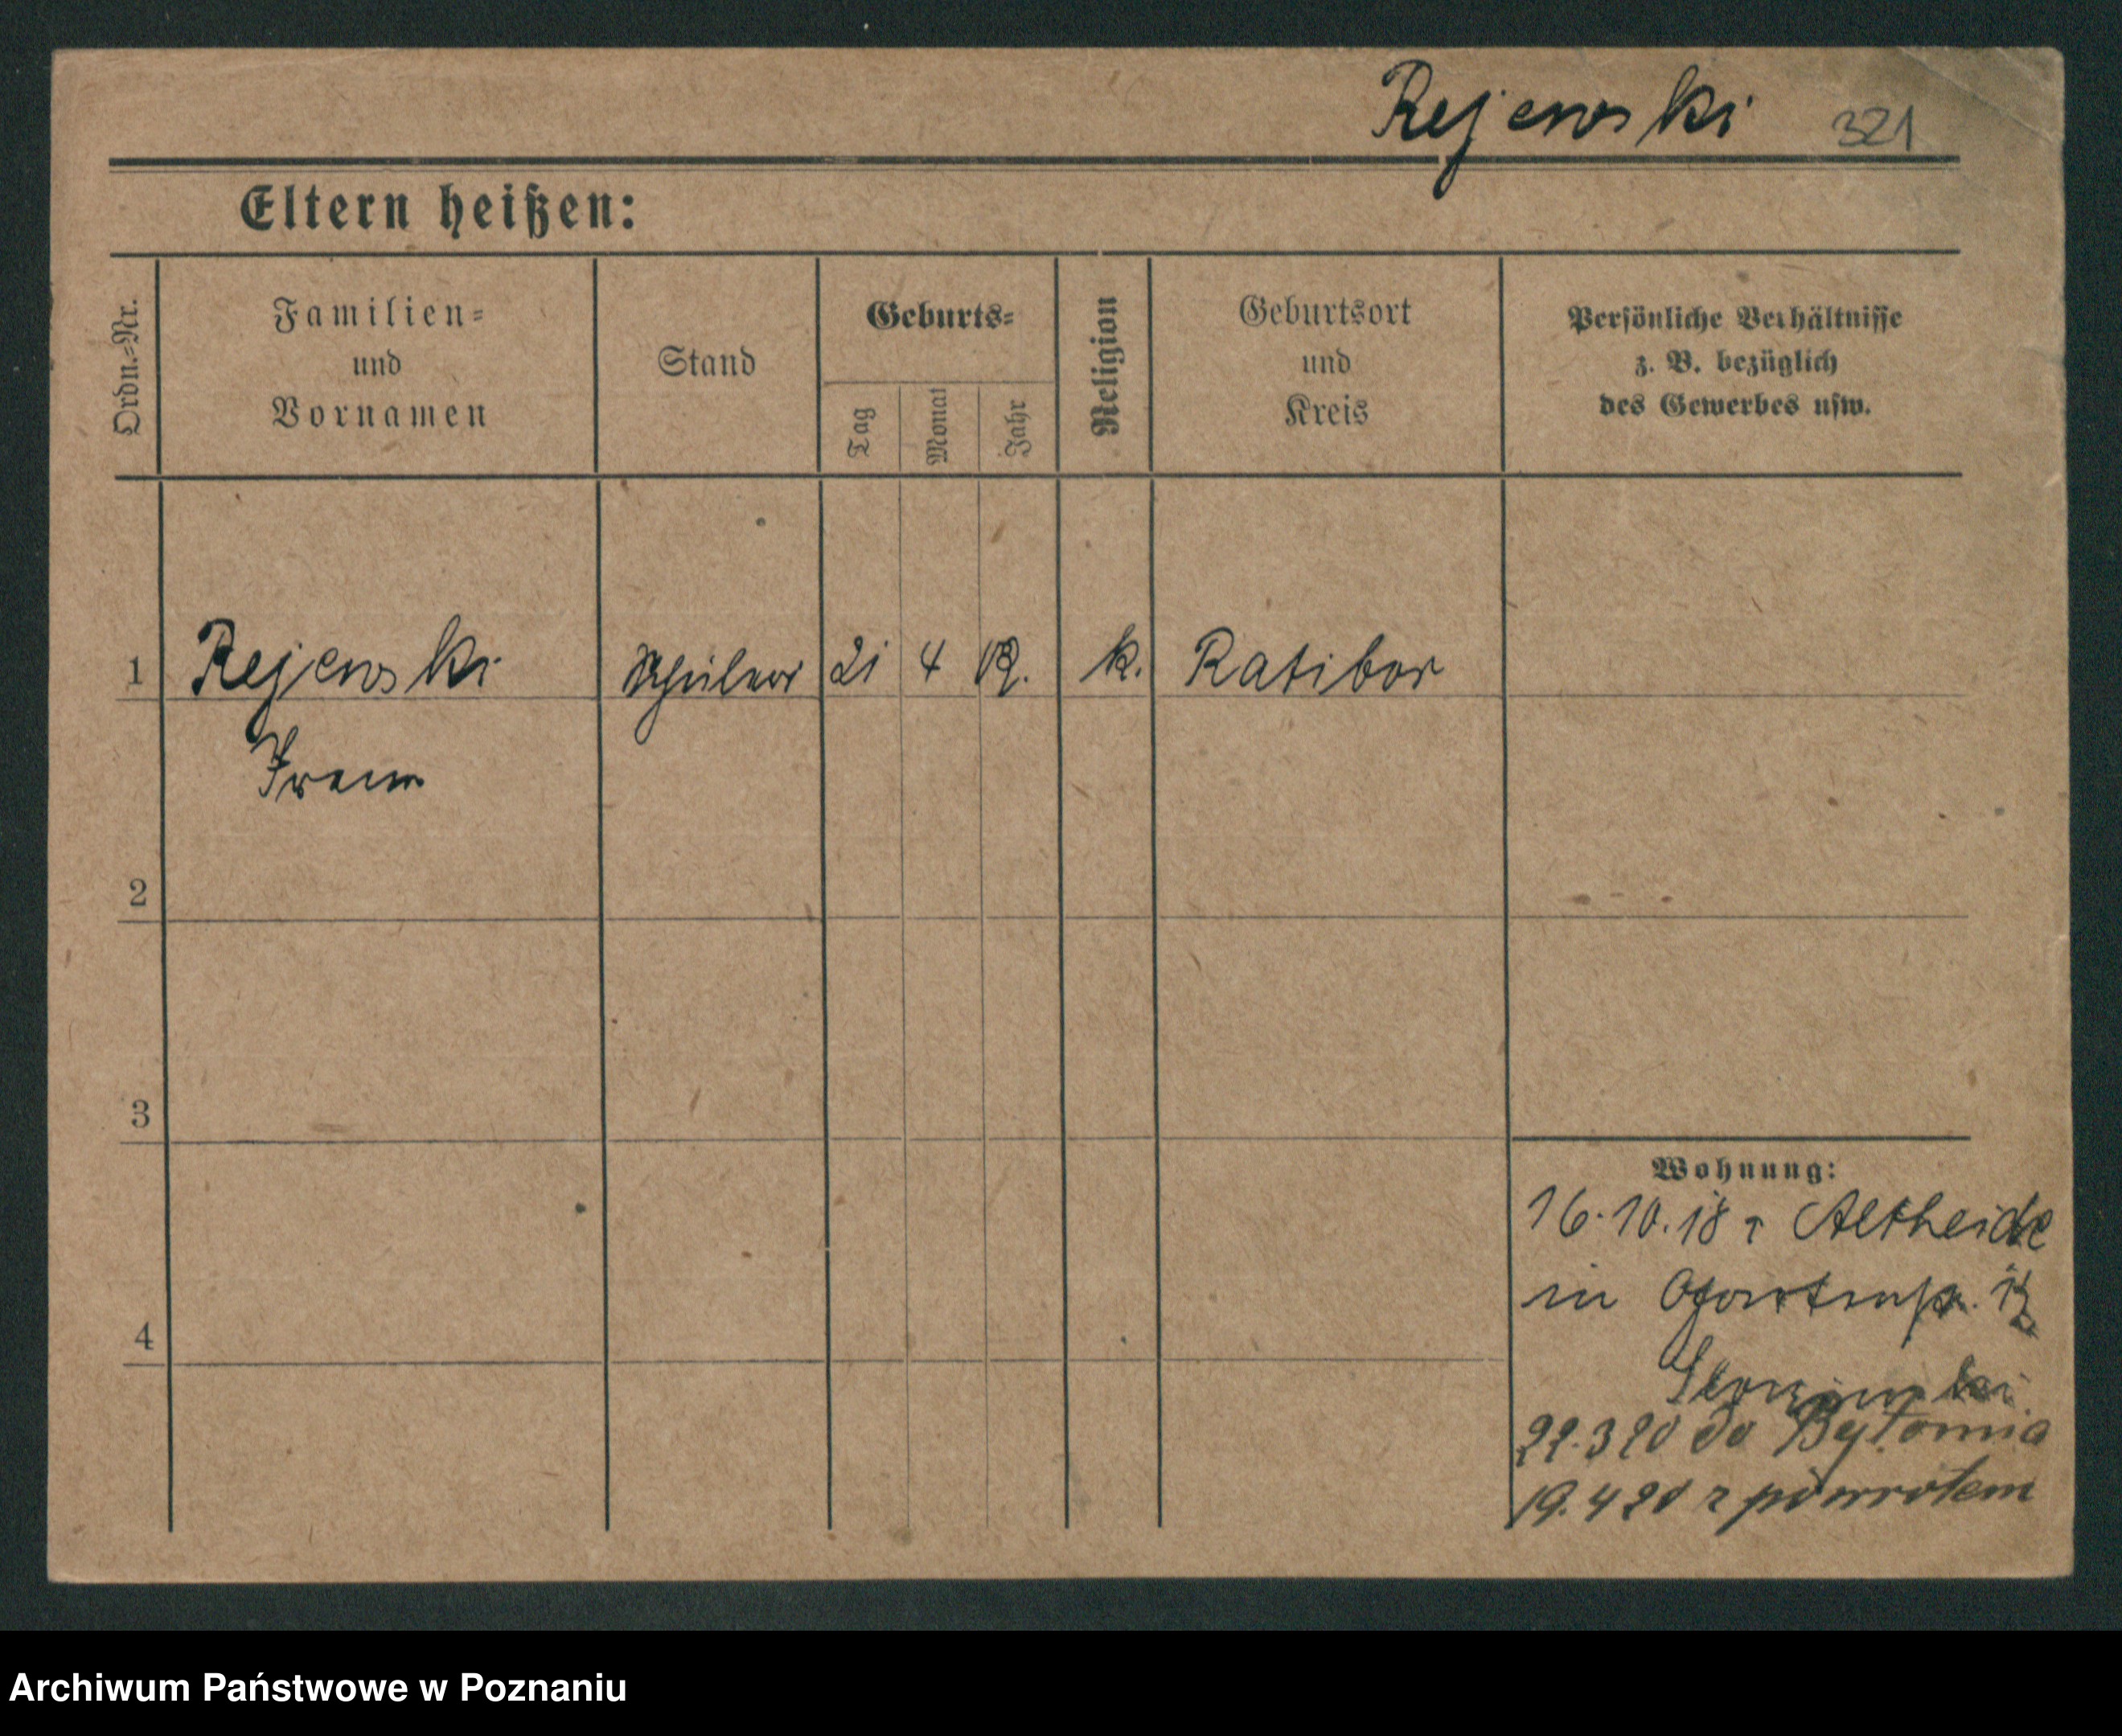 Rejewski 321
Eltern heißen:
Ordn.=Nr.
Familien=
und
Vornamen
Stand
Geburts=
Tag
Monat
Jahr
Religion
Geburtsort
und
Kreis
Persönliche Verhältnisse
z. B. bezüglich
des Gewerbes usw.
1 Rejewski Schüler 21 4 k. Ratibor
2
3
4
Wohnung:
16.10.18 Altheide
in
22.3 20 do Bytomia
19.4 20 z powrotem
Archiwum Państwowe w Poznaniu